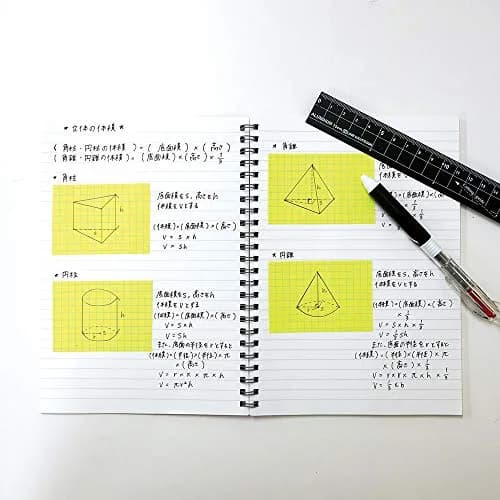 * 立体の体積 *
(角柱・円柱の体積) = (底面積) × (高さ)
(角錐・円錐の体積) = (底面積) × (高さ) × 1/3
* 角柱
h
S
底面積をS、高さをh
体積をVとする
(体積) = (底面積) × (高さ)
V = S × h
V = Sh
* 円柱
h
r
底面積をS、高さをh
体積をVとする
(体積) = (底面積) × (高さ)
V = S × h
V = Sh
また、底面の半径をrとすると
(体積) = (半径) × (半径) × π
× (高さ)
V = r × r × π × h
V = πr²h
* 角錐
h
S
底
体
(高さ)
× 1/3
V = S × h × 1/3
V = 1/3 Sh
* 円錐
h
底面積をS、高さをh
体積をVとする
(体積) = (底面積) × (高さ)
× 1/3
V = S × h × 1/3
V = 1/3 Sh
また、底面の半径をrとすると
(体積) = (半径) × (半径) × π
× (高さ) × 1/3
V = r × r × π × h × 1/3
0 1 2 3 4 5 6 7 8 9 10 11 12 13 14 15